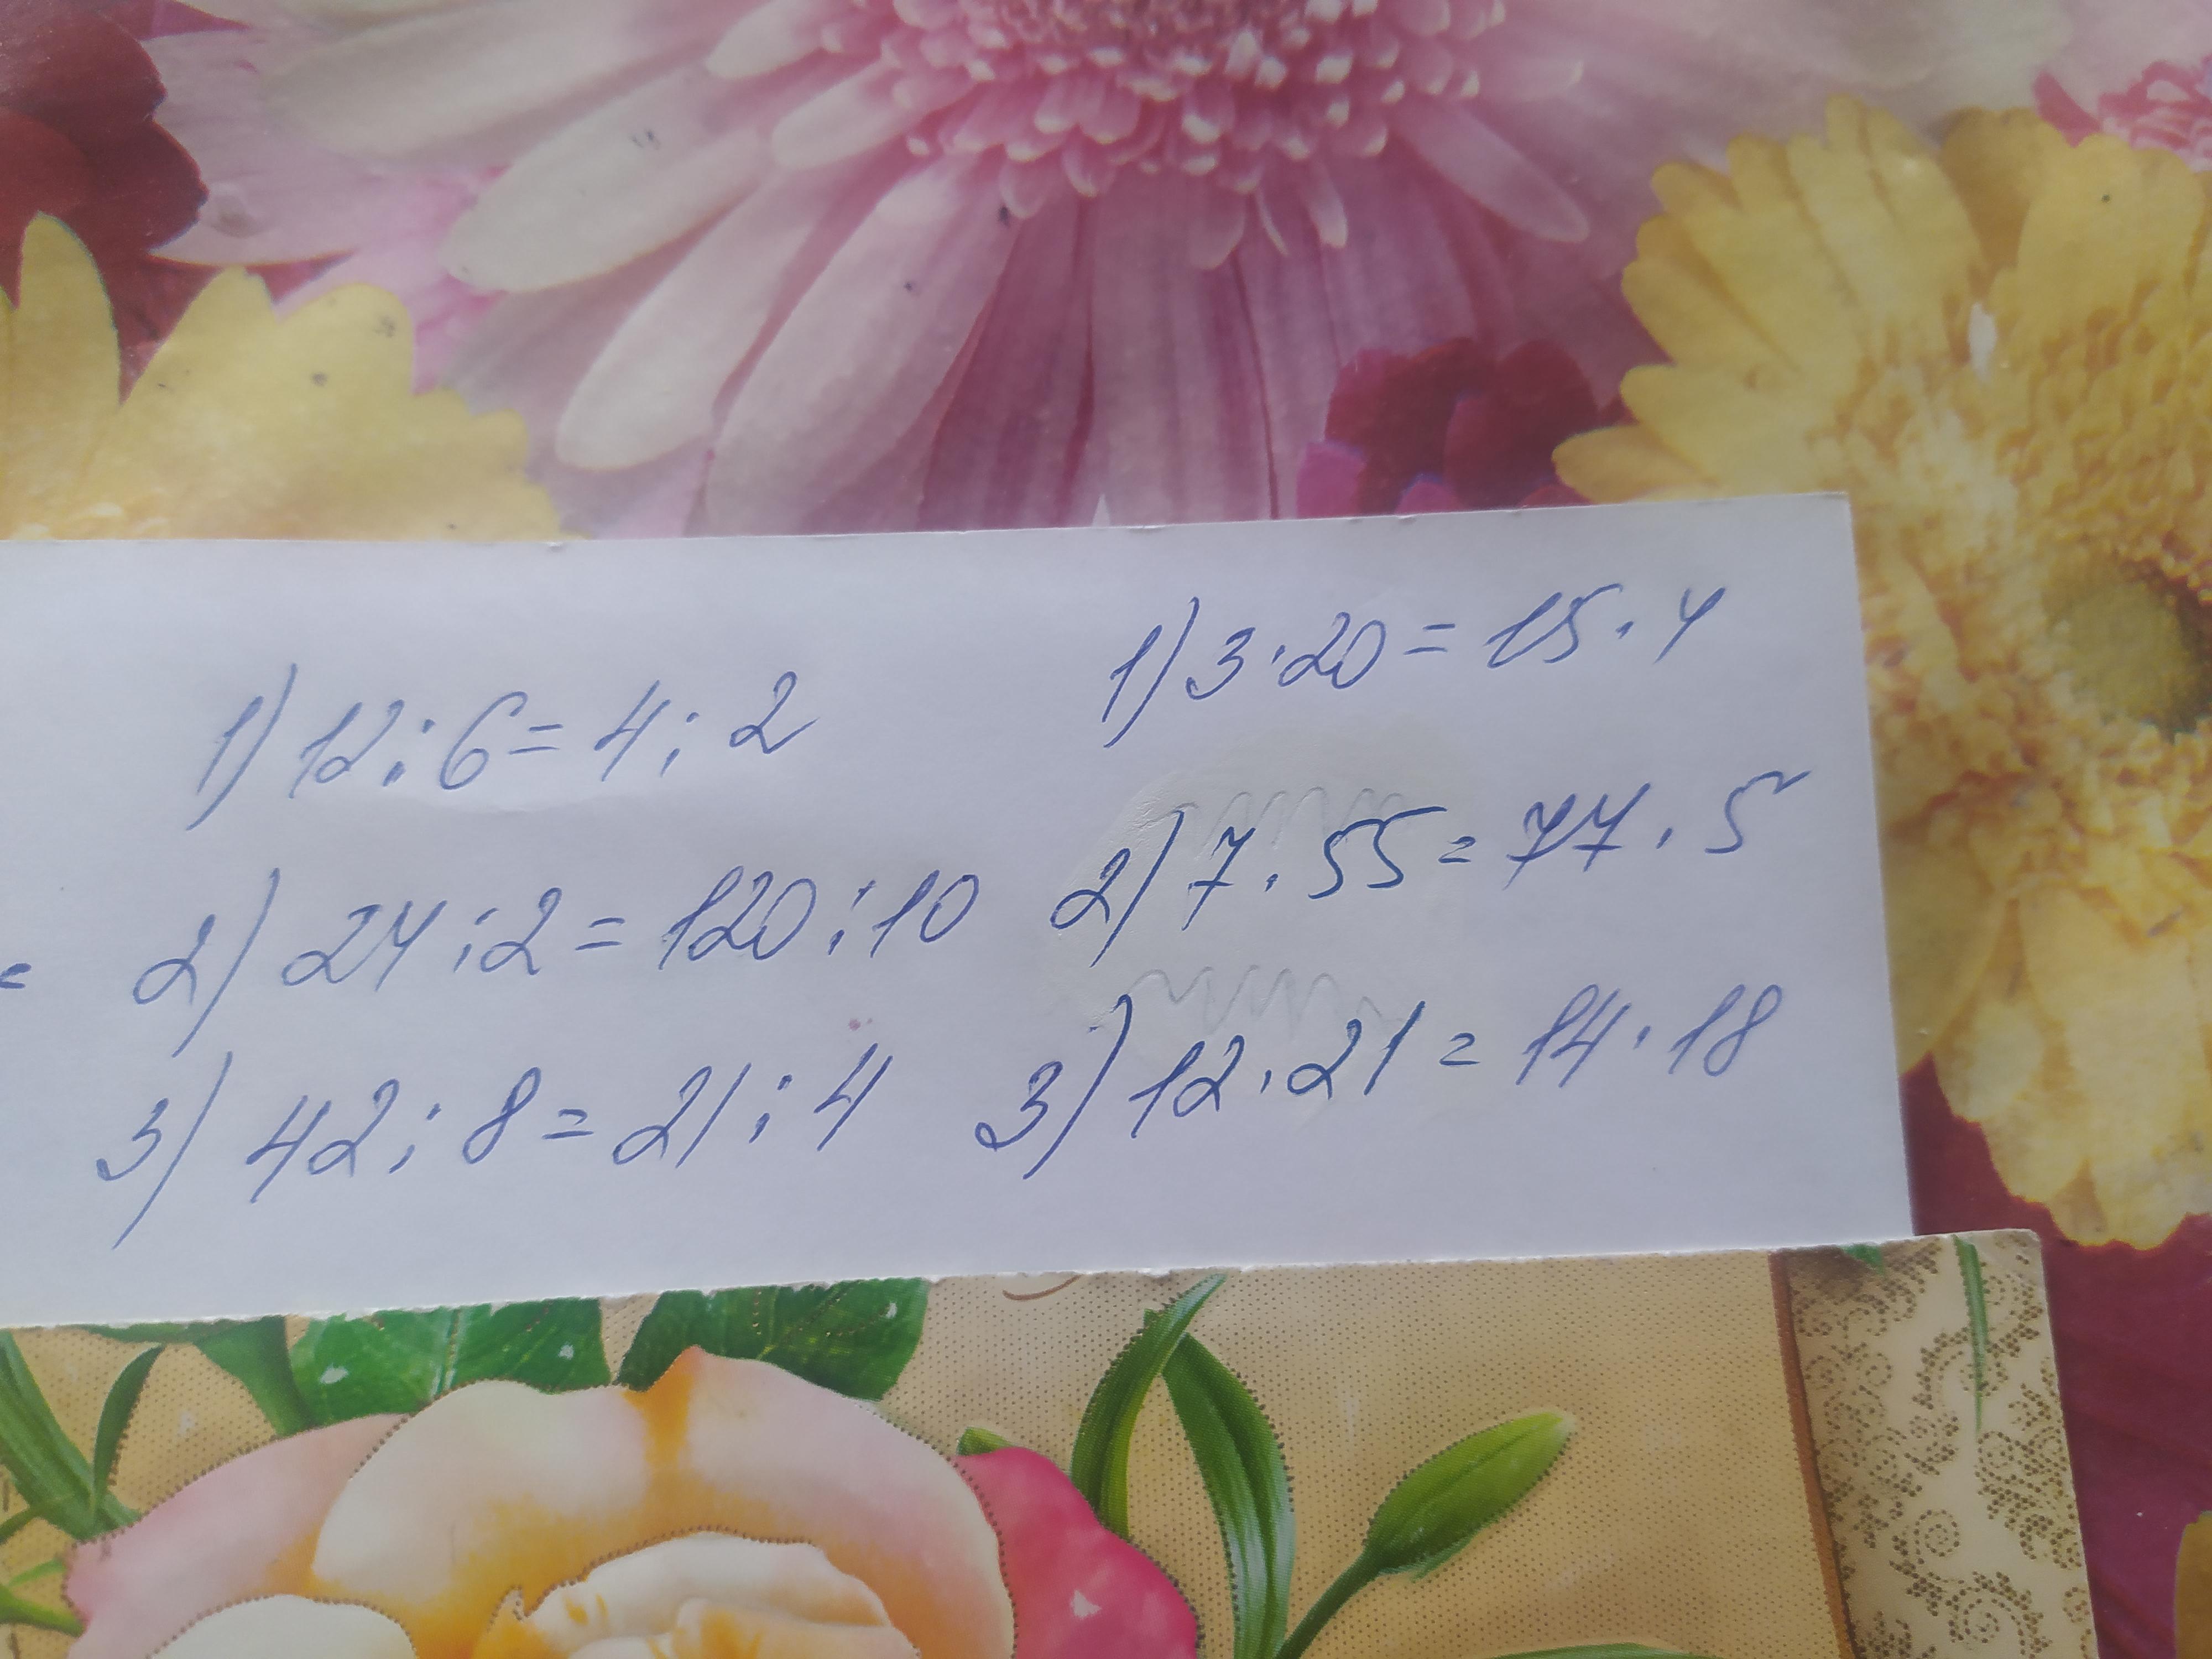 1) 12 : 6 = 4 : 2
2) 24 : 2 = 120 : 10
3) 42 : 8 = 21 : 4
1) 3 · 20 = 15 · 4
2) 7 · 55 = 77 · 5
3) 12 · 21 = 14 · 18
=